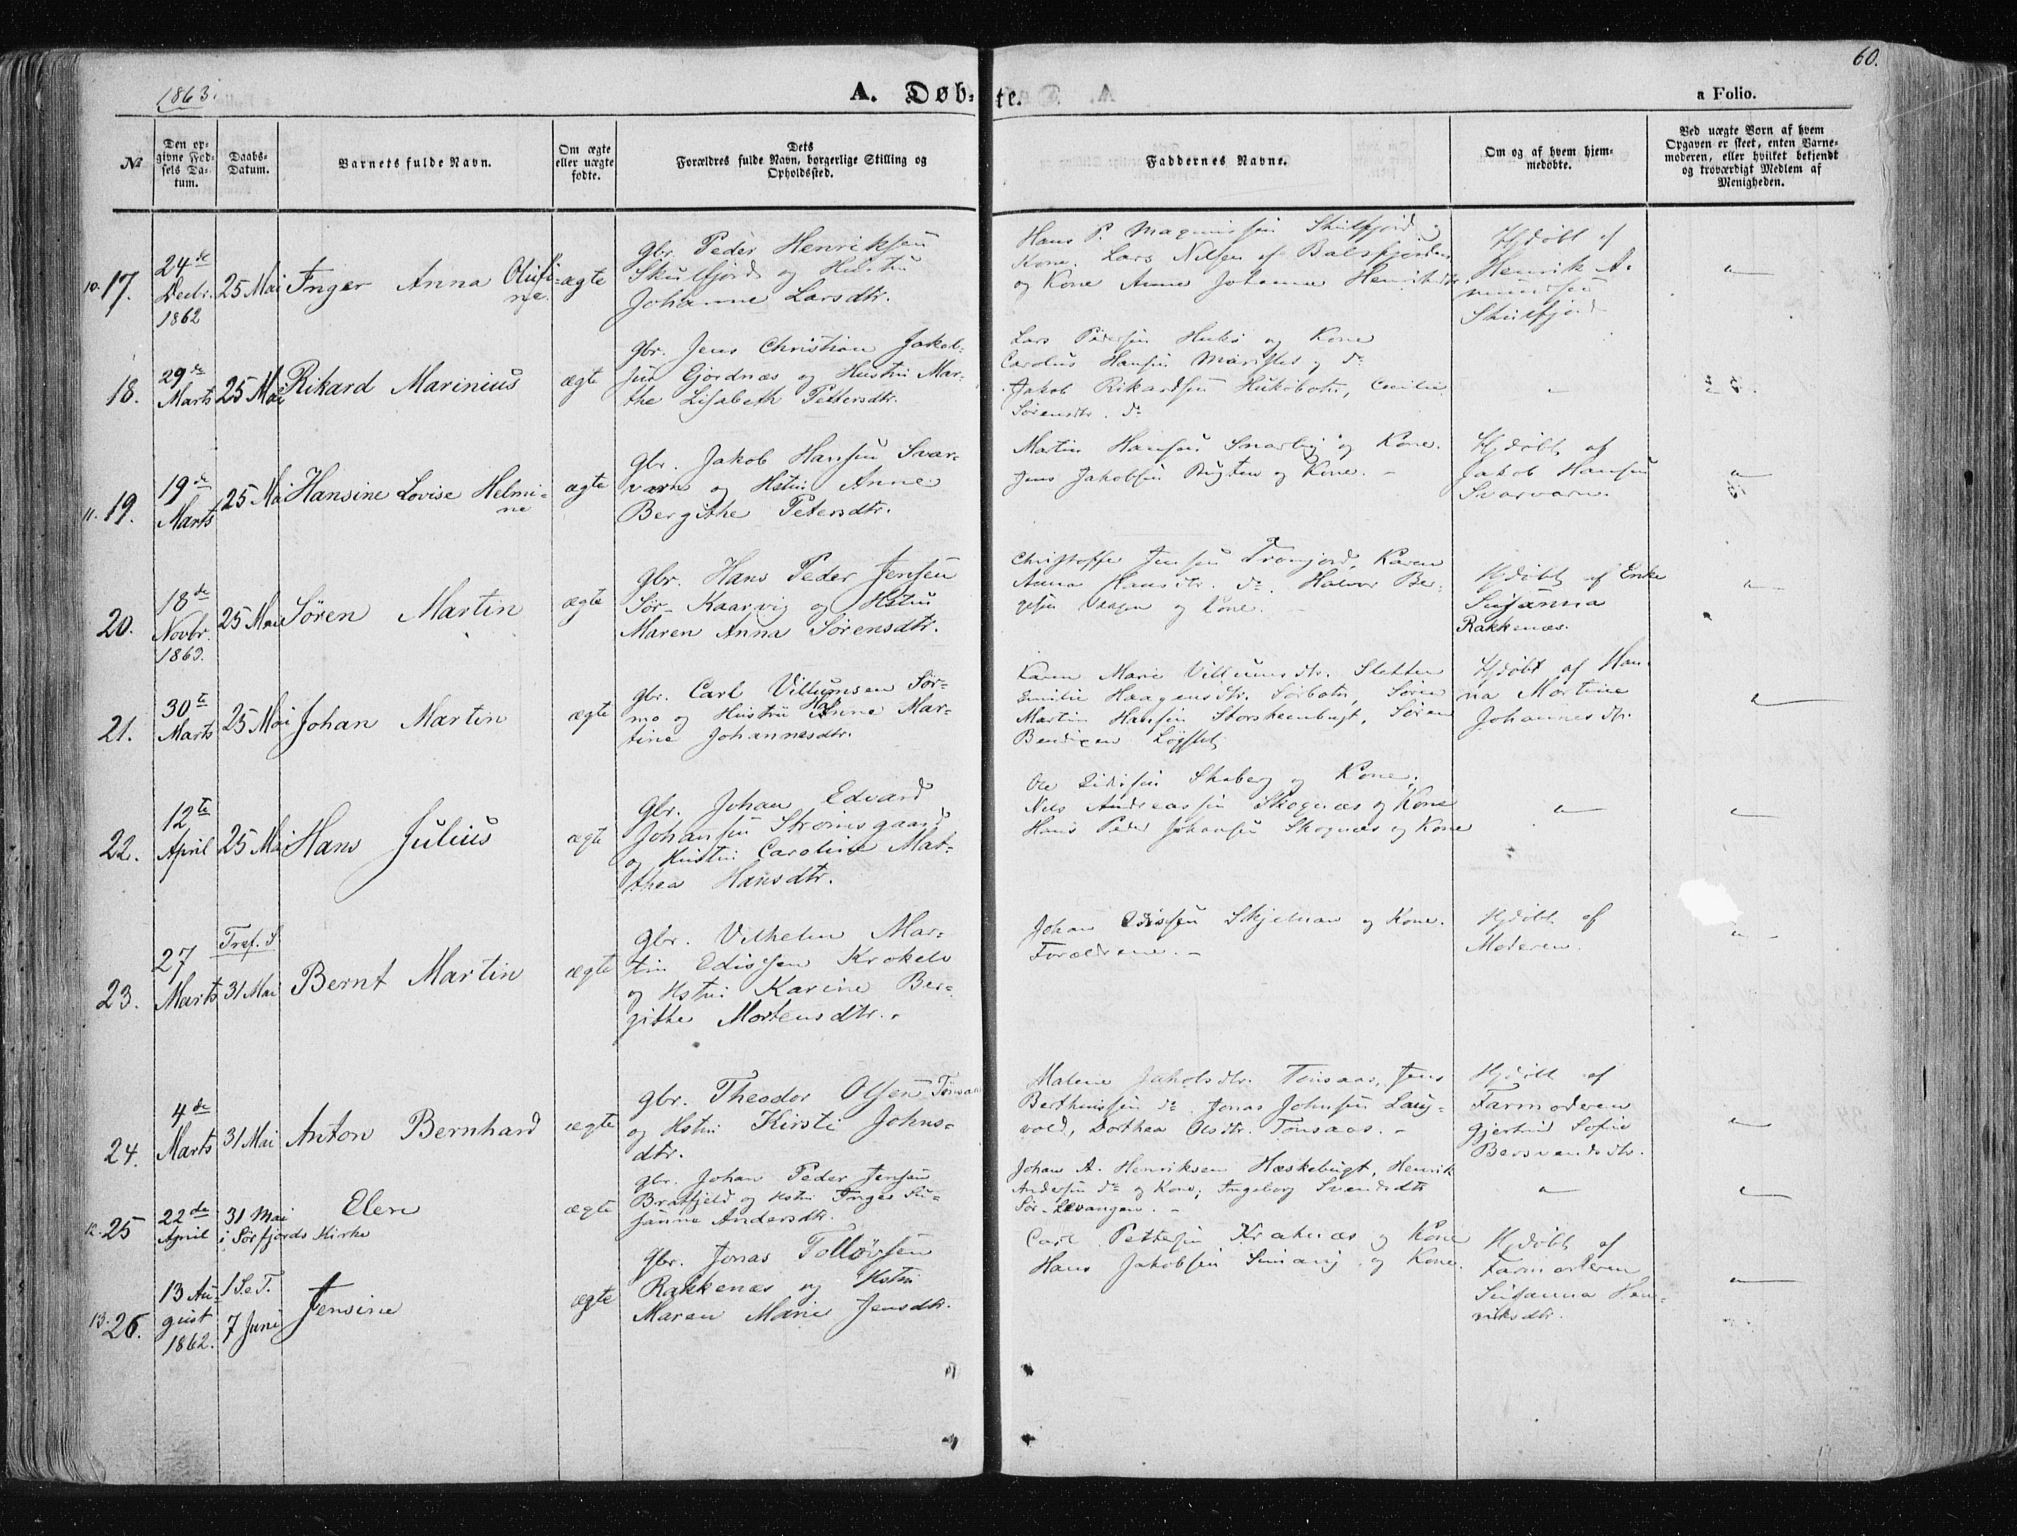 1863.
A. Døbte.
a Folio.
60.
No
Den opgivne Fødsels Datum.
Daabs-Datum.
Barnets fulde Navn.
Om ægte eller uægte fødte.
Dets Forældres fulde Navn, borgerlige Stilling og Opholdssted.
Faddernes Navne.
Om og af hvem hjemmedøbte.
Ved uægte Børn af hvem Opgaven er skeet, enten Barnemoderen, eller hvilket bekjendt og troværdigt Medlem af Menigheden.
10. 17.
24de
Decbr.
1862
25 Mai
Inger Anna Olufi-
ne.
ægte
gbr. Peder Henriksen
Skulfjord og Hustru
Johanne Larsdtr.
Hans P. Magnussen Skulfjord og
Kone. Lars Nilsen af Balsfjorden
og Kone Anne Johanna Henriksdtr.
Hjdøbt af
Henrik A-
mundsen
Skulfjord
18.
29de
Marts
25 Mai
Rikard Marinius
ægte
gbr. Jens Christian Jakob-
sen Gjordnæs og Hustru Mar-
the Lisabeth Pettersdtr.
Lars Pedersen og Kone
Carolus Hansen og do
Jakob Rikardsen
Sørensdtr. do
11. 19.
19de
Marts
25 Mai
Hansine Lovise Helmi-
ne
ægte
gbr. Jakob Hansen Svar-
varn og Hstru Anne
Bergithe Petersdtr.
Martin Hansen og Kone.
Jens Jakobsen Bugten og Kone. -
Hjdøbt af
Jakob Hansen
Svarvarn.
20.
18de
Novbr.
1863.
25 Mai
Søren Martin
ægte
gbr. Hans Peder Jensen
Sør-Kaarvig og Hstru
Maren Anna Sørensdtr.
Christoffer Jensen Tromjord, Karen
Anna Hansdtr. do. Halvor Ber-
gesen Vaagen og Kone. -
Hjdøbt af Enke
Susanna
Rakkenæs.
21.
30te
Marts
25 Mai
Johan Martin
ægte
gbr. Carl Villumsen Sør-
mo og Hustru Hanne Mar-
tine Johannesdtr.
Karen Marie Villumsdtr. Sletten
Emilie Haagensdtr. Sørbotn, Søren
Martin Hansen Storsteenbugt, Søren
Bendixen
Hjdøbt af Han-
na Martine
Johannesdtr.
22.
12te
April
25 Mai
Hans Julius
ægte
gbr. Johan Edvard
Johansen Strømsgaard
og Hustru Caroline Mat-
thea Hansdtr.
Ole Edissen Skaberg og Kone.
Nils Andreassen Skognæs og Kone
Hans Peder Johansen Skognæs og Kone
23.
27
Marts
Tref. S.
31 Mai
Bernt Martin
ægte
gbr. Vilhelm Mar-
tin Edissen Krokelv
og Hstru Karine Ber-
githe Mortensdtr. -
Johan Edissen Skjelnan og Kone.
Forældrene. -
Hjdøbt af
Moderen.
24.
4de
Marts
31 Mai
Anton Bernhard
ægte
gbr. Theodor Olsen Tønsaas
og Hstru Kirsti Johns-
dtr.
Malene Jakobsdtr. Tønsaas, Jens
Berthussen do. Jonas Johnsen Laug-
vold, Dorthea Olsdtr. Tønsaas. -
Hjdøbt af
Farmoderen
Gjertrud Sofie
Bersvendsdtr.
12. 25
22de
April
31 Mai
i Sørfjords Kirke
Elen
ægte
gbr. Johan Peder Jensen
Bratfjeld og Hstru Inger Su-
sanne Andersdtr.
Johan A. Henriksen Hæskebugt, Henrik
Andersen do og Kone; Ingeborg Svendsdtr
Sør-Lævangen. -
13. 26.
13 Au-
gust
1862.
1 S. e. T.
7 Juni
Jensine
ægte
gbr. Jonas Tolløvsen
Rakkenæs og Hstru
Maren Marie Jensdtr.
Carl Pettersen Kraknæs og Kone
Hans Jakobsen og Kone.
Hjdøbt af
Farmoderen
Susanna Hen-
riksdtr.